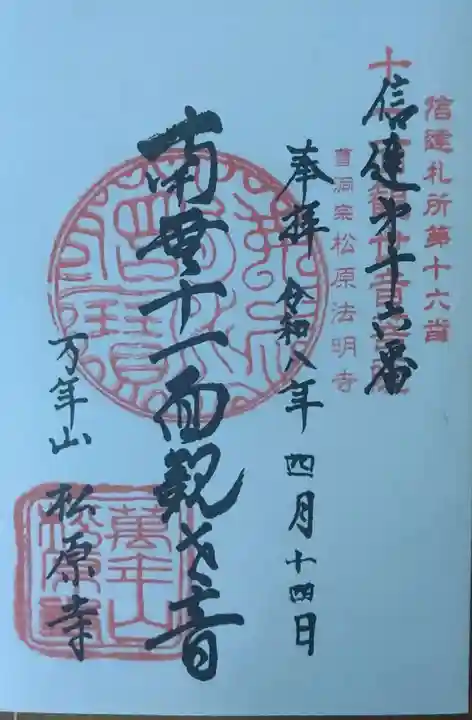 信達札所第十六番
十一面観世音菩薩
信達第十六番
曹洞宗松原法明寺
奉拝 令和八年四月十四日
南無十一面観世音
万年山 松原寺
萬年山
松原寺